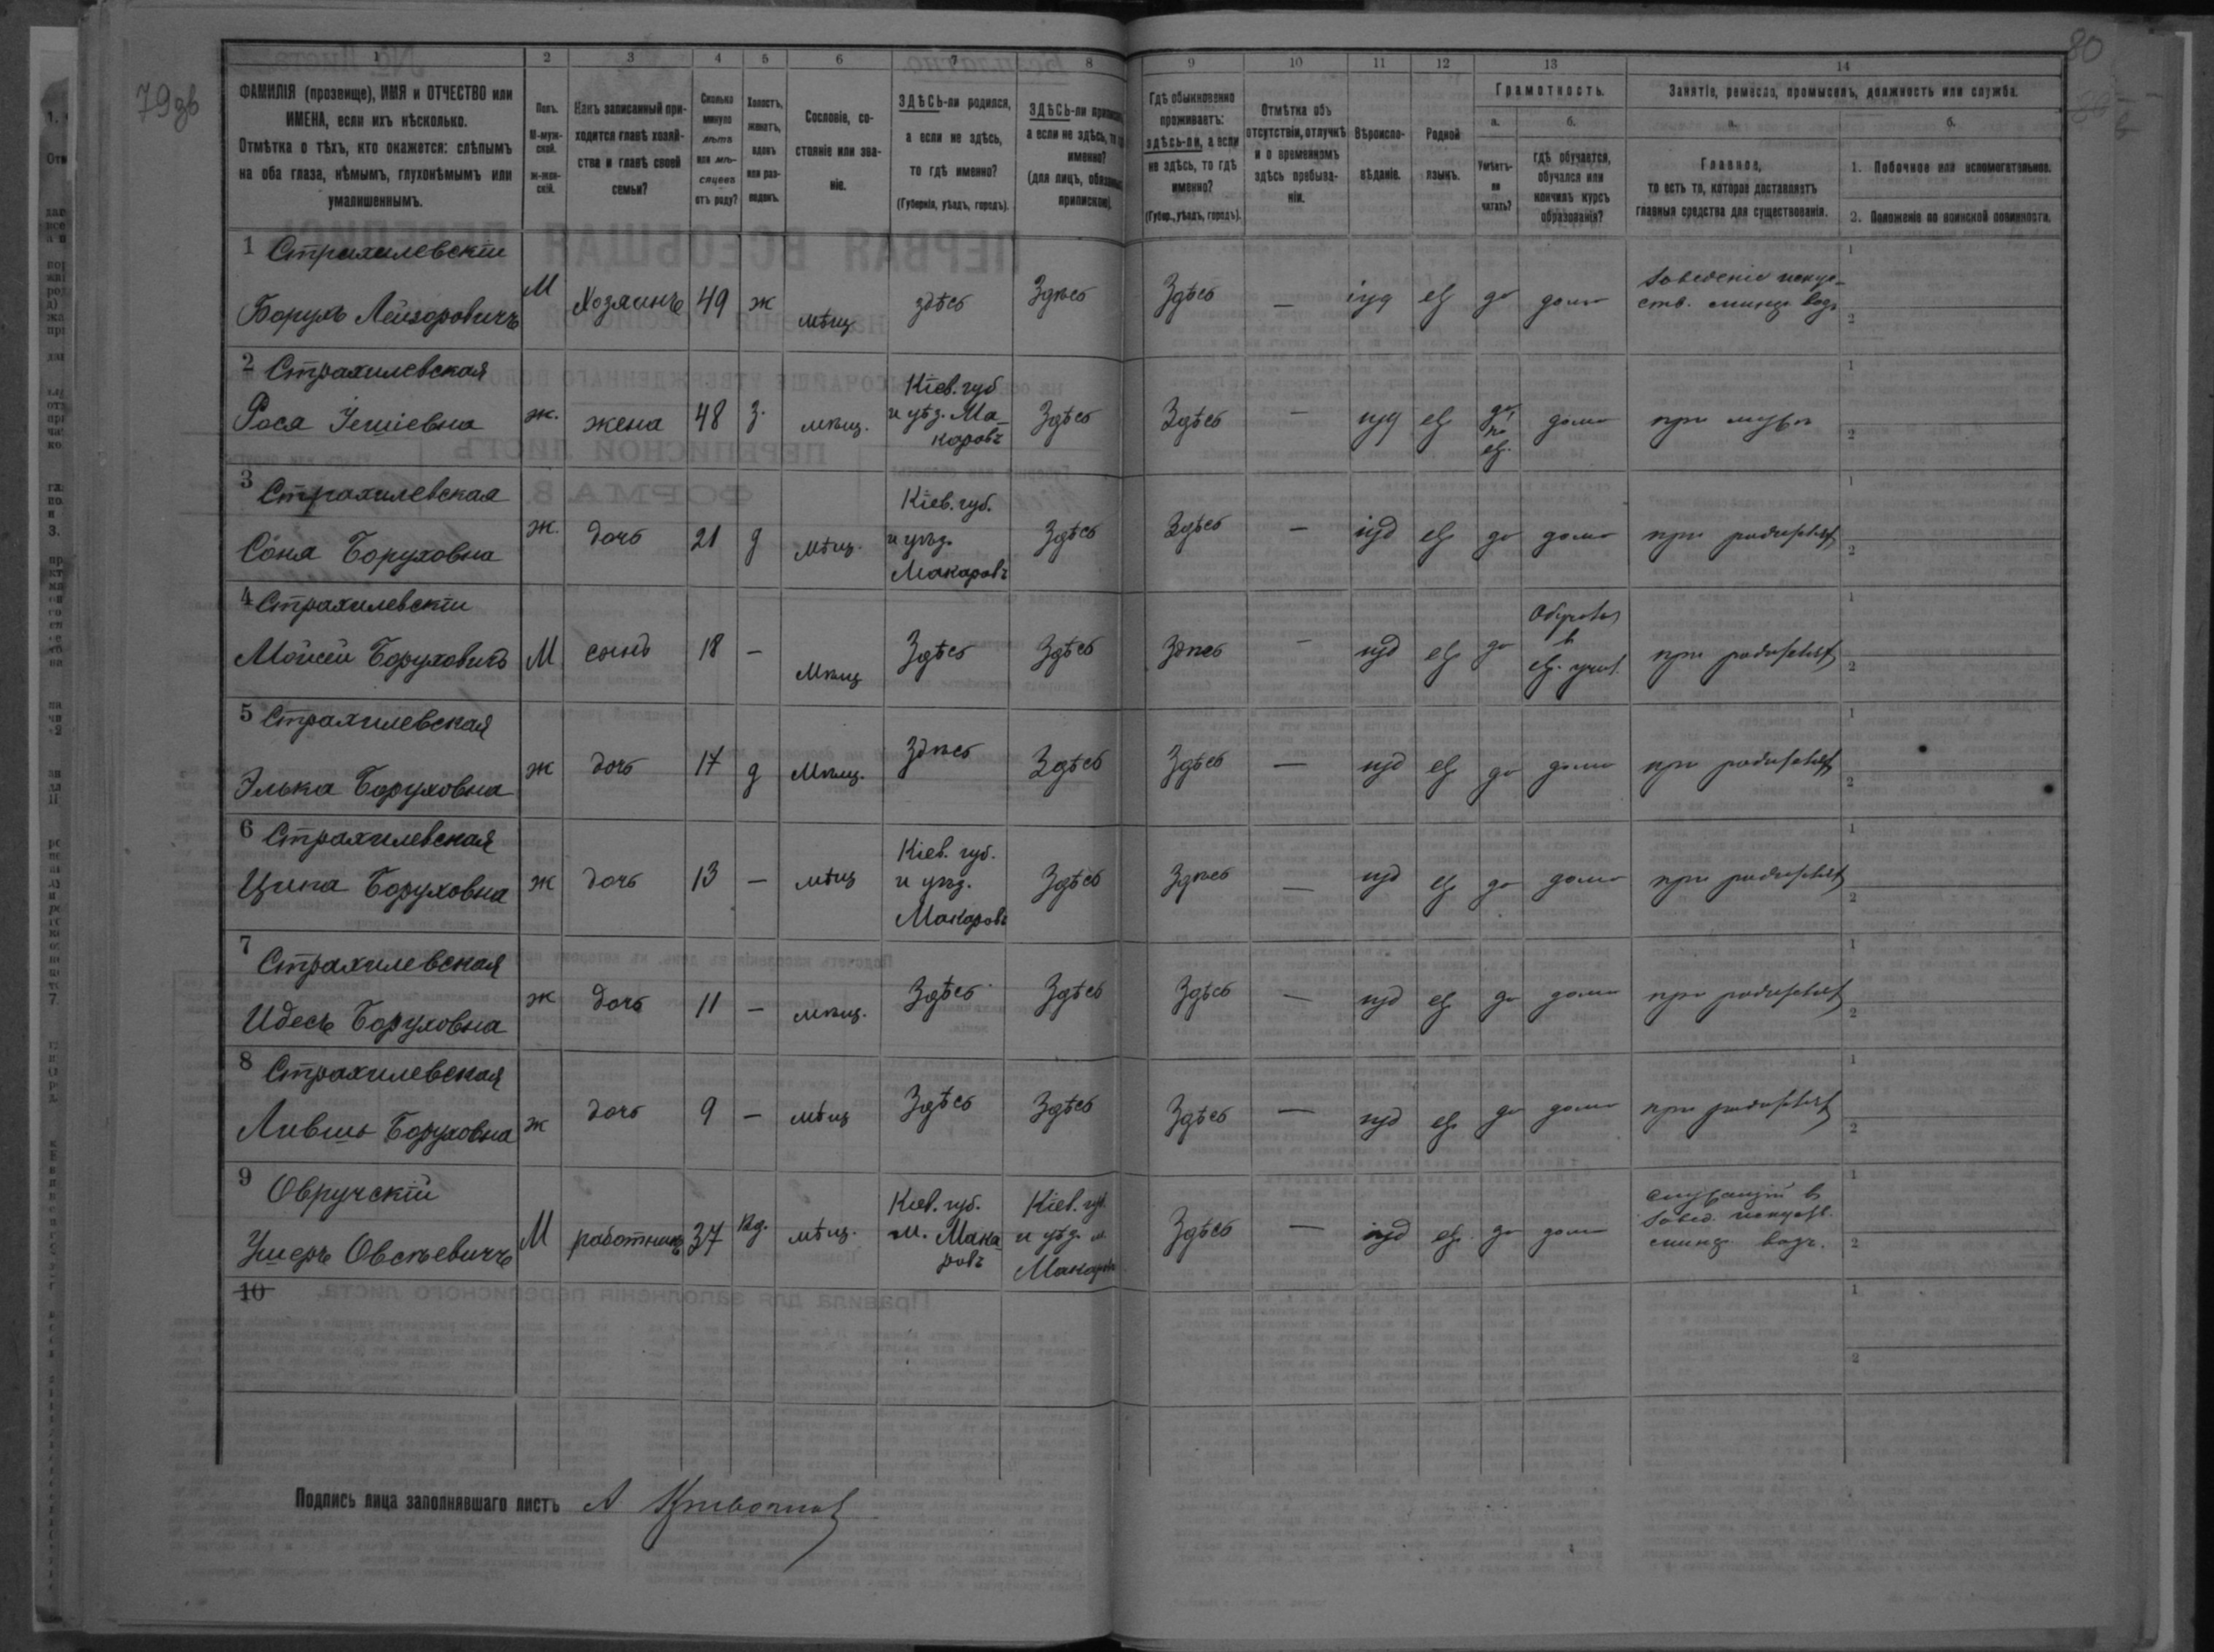 79зв
80
1
2
3
4
5
6
7
8
9
10
11
12
13
14
ФАМИЛІЯ (прозвище), ИМЯ и ОТЧЕСТВО или
ИМЕНА, если ихъ нѣсколько.
Отмѣтка о тѣхъ, кто окажется: слѣпымъ
на оба глаза, нѣмымъ, глухонѣмымъ или
умалишеннымъ.
Полъ.
М-муж-
ской.
Ж-жен-
скій.
Какъ записанный при-
ходится главѣ хозяй-
ства и главѣ своей
семьи?
Сколько
минуло
лѣтъ
или мѣ-
сяцевъ
отъ роду?
Холостъ,
женатъ,
вдовъ
или раз-
веденъ.
Сословіе, со-
стояніе или зва-
ніе.
ЗДѢСЬ-ли родился,
а если не здѣсь,
то гдѣ именно?
(Губернія, уѣздъ, городъ).
ЗДѢСЬ-ли
а если не здѣсь,
именно?
(для лицъ,
припискою).
Гдѣ обыкновенно
проживаетъ:
здѣсь-ли, а если
не здѣсь, то гдѣ
именно?
(Губер., уѣздъ, городъ).
Отмѣтка объ
отсутствіи, отлучкѣ
и о временномъ
здѣсь пребыва-
ніи.
Вѣроиспо-
вѣданіе.
Родной
языкъ.
Грамотность.
а.
б.
Умѣетъ-
ли
читать?
гдѣ обучается,
обучался или
кончилъ курсъ
образованія?
Занятіе, ремесло, промыселъ, должность или служба.
а.
б.
Главное,
то есть то, которое доставляетъ
главныя средства для существованія.
1. Побочное или вспомогательное.
2. Положеніе по воинской повинности.
1 Страхилевскій
Борухъ Лейзоровичъ М Хозяинъ 49 ж мѣщ. здѣсь Здѣсь Здѣсь — іуд ев да дома
Заведеніе искус-
ств. минер. водъ
2 Страхилевская
Рося Іешіевна ж. жена 48 з. мѣщ.
Кіев. губ
и уѣз. Ма-
каровъ
Здѣсь Здѣсь — іуд ев
да
по
ев.
дома при мужѣ
3 Страхилевская
Соня Боруховна ж. дочь 21 д мѣщ.
Кіев. губ.
и уѣз.
Макаровъ
Здѣсь Здѣсь — іуд ев да дома при родителях
4 Страхилевскій
Мойсей Боруховичъ М сынъ 18 — Мѣщ Здѣсь Здѣсь Здѣсь — іуд ев да
в
ев. учил.
при родителях
5 Страхилевская
Элька Боруховна ж дочь 17 д Мѣщ. Здѣсь Здѣсь Здѣсь — іуд ев да дома при родителях
6 Страхилевская
Ципа Боруховна ж дочь 13 — мѣщ
Кіев. губ.
и уѣз.
Макаровъ
Здѣсь Здѣсь — іуд ев да дома при родителях
7 Страхилевская
Идесь Боруховна ж дочь 11 — мѣщ. Здѣсь Здѣсь Здѣсь — іуд ев да дома при родителях
8 Страхилевская
Лившь Боруховна ж дочь 9 — мѣщ Здѣсь Здѣсь Здѣсь — іуд ев да дома при родителях
9 Овручскій
Ушеръ Овсѣевичъ М работникъ 37 вд. мѣщ.
Кіев. губ.
м. Мака-
ровъ
Кіев. губ.
и уѣз. м.
Макаровъ
Здѣсь — іуд ев. да дома
служащій в
завед. искуств.
минер. водъ.
10
Подпись лица заполнявшаго листъ А